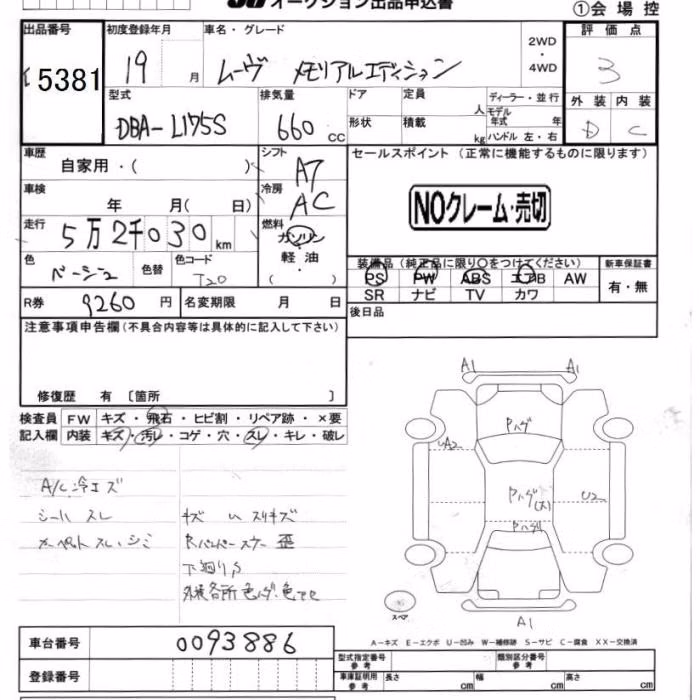 オークション出品申込書
①会場控
出品番号 初度登録年月 車名・グレード 評価点
5381 19 月 ムーヴ メモリアルエディション 2WD 4WD 3
型式 排気量 ドア 定員 ディーラー・並行 外装 内装
DBA-L175S 660 CC 形状 積載 人 kg モデル年式 年 ハンドル 左・右 D C
車歴 シフト セールスポイント (正常に機能するものに限ります)
自家用・( ) A7
車検 冷房
年 月( 日) AC NOクレーム・売切
走行 燃料
5万2千030km ガソリン
軽油
( )
色 ベージュ 色替 色コード T20
装備品 (純正品に限り○をつけてください) 新車保証書
PS PW ABS エアB AW 有・無
SR ナビ TV カワ
R券 9260円 名変期限 月 日 後日品
注意事項申告欄(不具合内容等は具体的に記入して下さい)
修復歴 有 〔箇所 〕
検査員 FW キズ・飛石・ヒビ割・リペア跡・×要
記入欄 内装 キズ・汚レ・コゲ・穴・スレ・キレ・破レ
A/C冷エズ
シート スレ
カーペットスレ・シミ
キズ
スリキズ
歪
下廻りS
外装各所色ハゲ・色アセ
A1 A1
Pハゲ
UA2
Pハゲ(大)
U2
Pハゲ
スペア
A1
A-キズ E-エクボ U-凹み W-補修跡 S-サビ C-腐食 XX-交換済
車台番号 0093886
登録番号
型式指定番号 参考 類別区分番号 参考
車庫証明用 参考 長さ cm 幅 cm 高さ cm